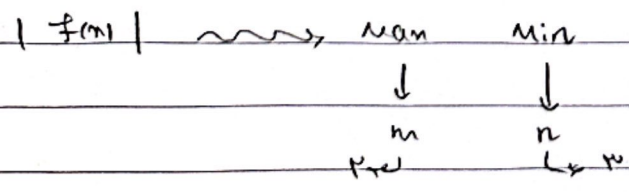 | f(x) | Max Min
↓ ↓
m n